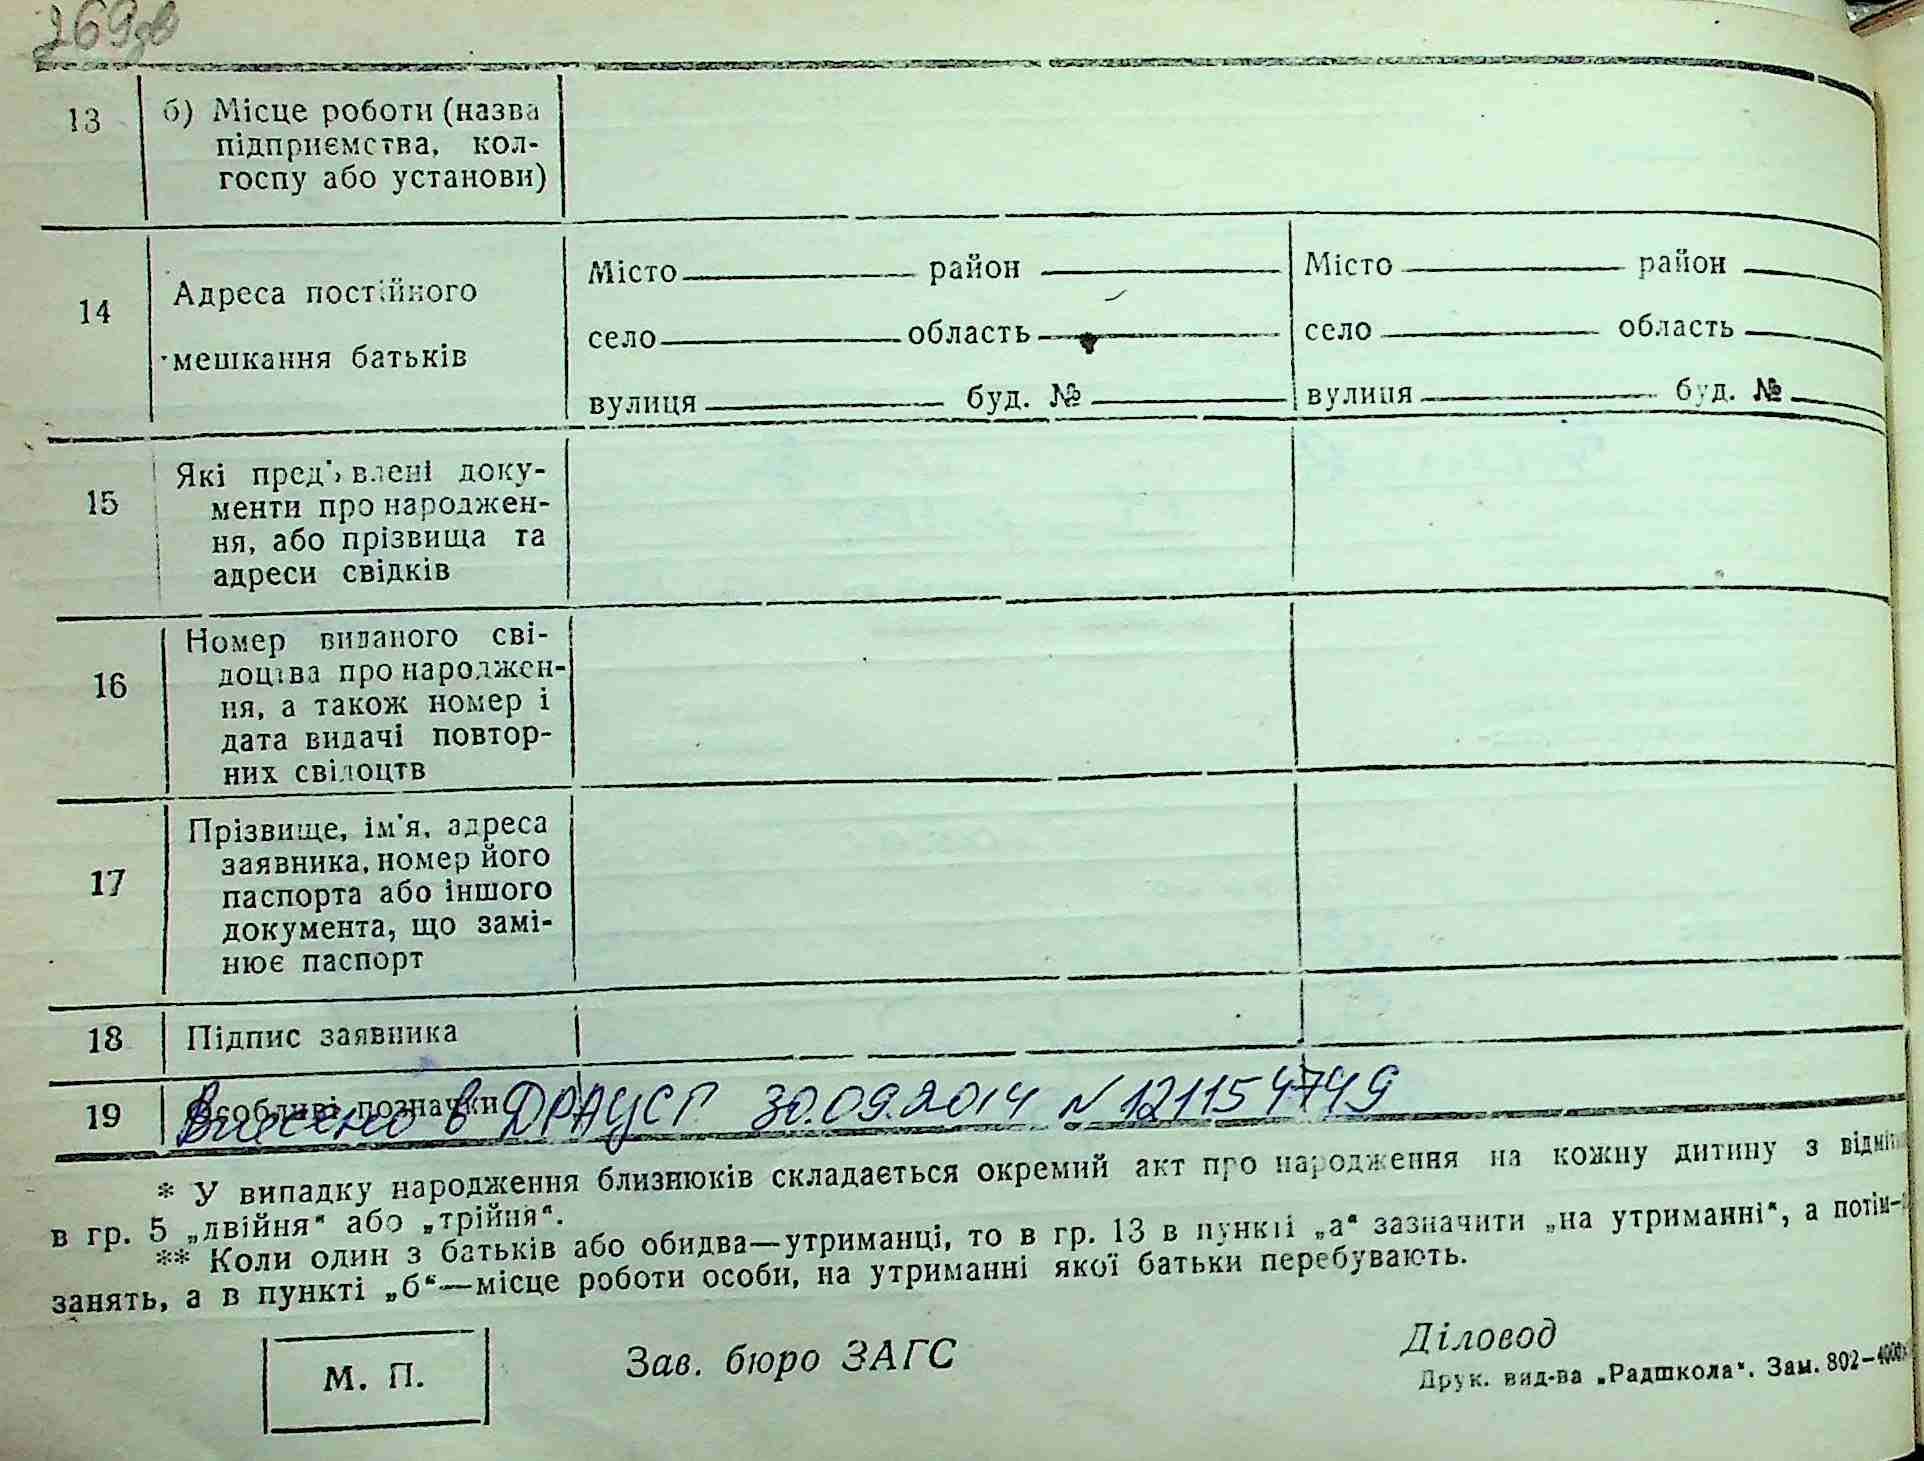 269зв
13 б) Місце роботи (назва
підприємства, кол-
госпу або установи)
14 Адреса постійного
мешкання батьків
Місто район
село область
вулиця буд. №
Місто район
село область
вулиця буд. №
15 Які пред'явлені доку-
менти про народжен-
ня, або прізвища та
адреси свідків
16 Номер виданого сві-
доцтва про народжен-
ня, а також номер і
дата видачі повтор-
них свідоцтв
17 Прізвище, ім'я, адреса
заявника, номер його
паспорта або іншого
документа, що замі-
нює паспорт
18 Підпис заявника
19 Особливі позначки
Внесено в ДРАЦСГ 30.09.2014 № 121154749
* У випадку народження близнюків складається окремий акт про народження на кожну дитину з відміт
в гр. 5 „двійня“ або „трійня“.
** Коли один з батьків або обидва—утриманці, то в гр. 13 в пункті „а“ зазначити „на утриманні“, а потім-
занять, а в пункті „б“—місце роботи особи, на утриманні якої батьки перебувають.
М. П.
Зав. бюро ЗАГС
Діловод
Друк. вид-ва „Радшкола“. Зам. 802—4000